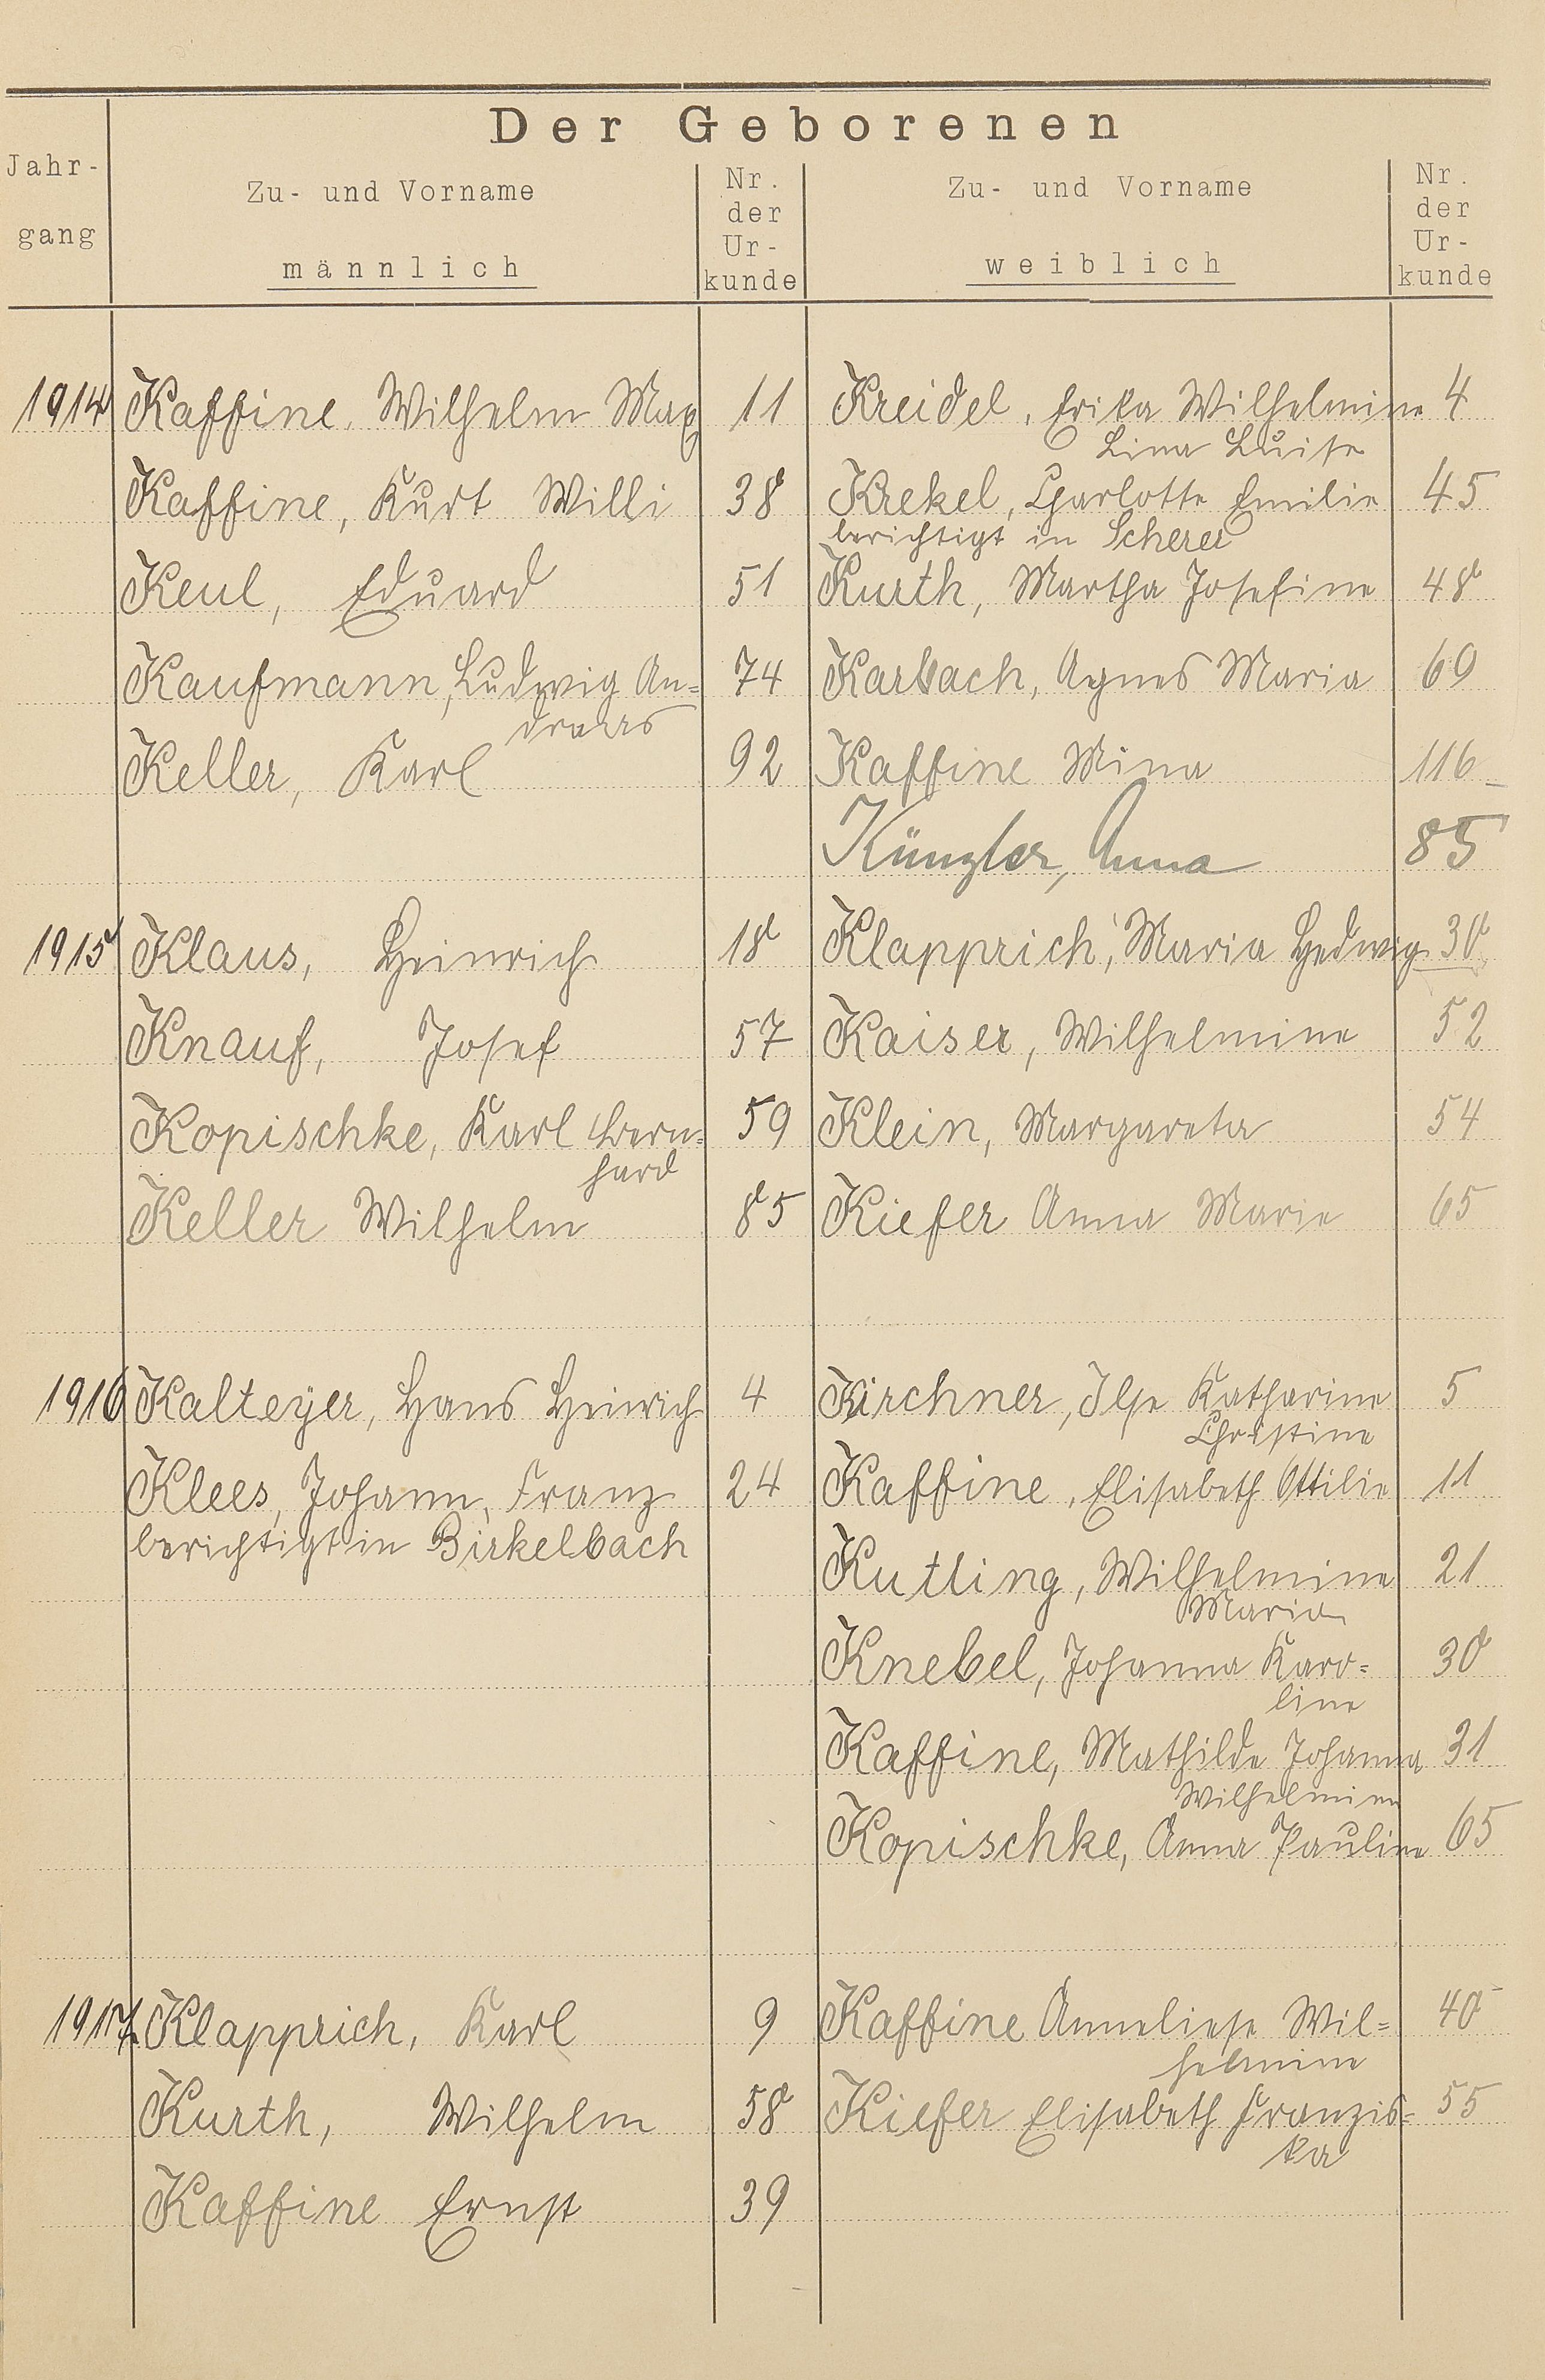 Der Geborenen
Jahrgang
Zu- und Vorname
männlich
Nr.
der
Ur-
kunde
Zu- und Vorname
weiblich
Nr.
der
Ur-
kunde
1914 Kaffine, Wilhelm Max 11 Kreidel, Erika Wilhelmine 4
Lina Luise
Kaffine, Kurt Willi 38 Krekel, Charlotte Emilie 45
berichtigt in Scherer
Keul, Eduard 51 Kurth, Martha Josefine 48
Kaufmann, Ludwig An= 74 Karbach, Agnes Maria 69
dreas
Keller, Karl 92 Kaffine Mina 116
Künzler, Anna 85
1915 Klaus, Heinrich 18 Klapprich, Maria Hedwig 30
Knauf, Josef 57 Kaiser, Wilhelmine 52
Kopischke, Karl Bern= 59 Klein, Margareta 54
hard
Keller Wilhelm 85 Kiefer Anna Marie 65
1916 Kalteyer, Hans Heinrich 4 Kirchner, Ilse Katharine 5
Christine
Klees, Johann, Franz 24 Kaffine, Elisabeth Ottilie 11
berichtigt in Birkelbach
Kutting, Wilhelmine 21
Maria
Knebel, Johanna Karo= 30
line
Kaffine, Mathilde Johanna 31
Wilhelmine
Kopischke, Anna Pauline 65
1917 Klapprich, Karl 9 Kaffine Anneliese Wil= 40
helmine
Kurth, Wilhelm 58 Kiefer Elisabeth Franzis= 55
ka
Kaffine Ernst 39